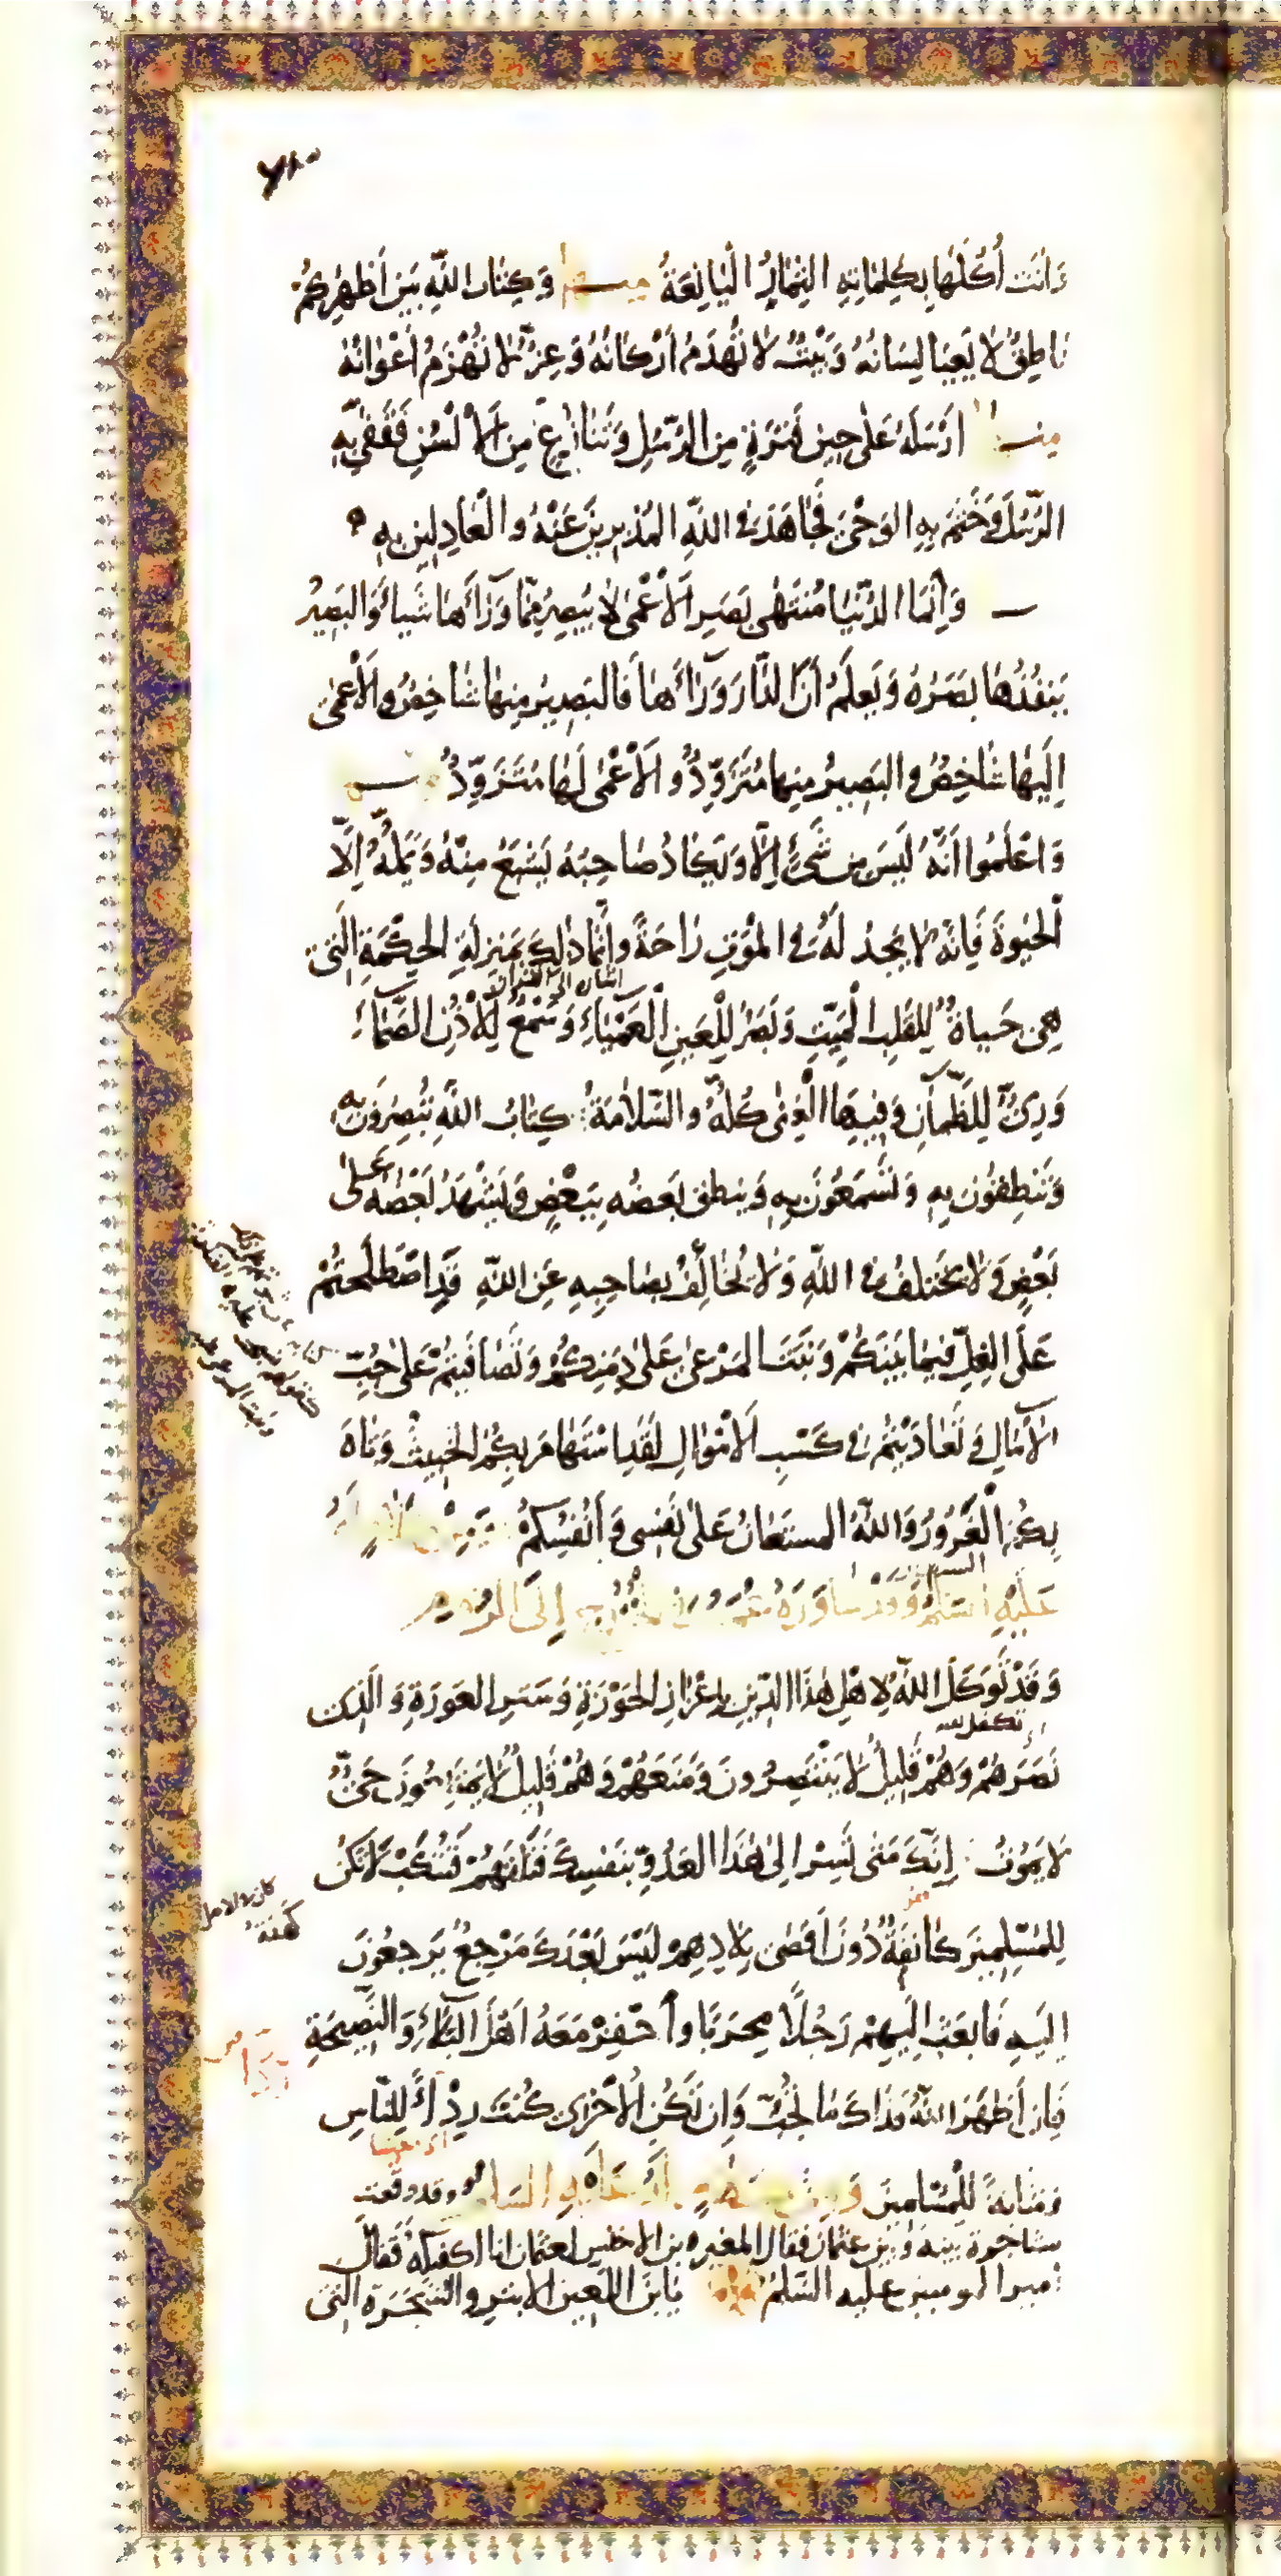 وَاٰتَتْ أُكُلَهٰا بِكَلِمٰاتِهِ الثِّمٰارُ الْيٰانِعَةُ منهٰا وَكِتٰابُ اللّٰهِ بَيْنَ أَظْهُرِكُمْ
نٰاطِقٌ لٰا يَعْيٰا لِسٰانُهُ وَبَيْتٌ لٰا تُهْدَمُ أَرْكٰانُهُ وَعِزٌّ لٰا تُهْزَمُ أَعْوٰانُهُ
منهٰا اَرْسَلَهُ عَلٰى حِينِ فَتْرَةٍ مِنَ الرُّسُلِ وَتَنٰازُعٍ مِنَ الْأَلْسُنِ فَقَفّٰى بِهِ
الرُّسُلَ وَخَتَمَ بِهِ الْوَحْيَ فَجٰاهَدَ فِي اللّٰهِ الْمُدْبِرِينَ عَنْهُ وَالْعٰادِلِينَ بِهِ
وَإِنَّمَا الدُّنْيٰا مُنْتَهٰى بَصَرِ الْأَعْمٰى لٰا يُبْصِرُ مِمّٰا وَرٰاءَهٰا شَيْئًا وَالْبَصِيرُ
يَنْفُذُهٰا بَصَرُهُ وَيَعْلَمُ أَنَّ الدّٰارَ وَرٰاءَهٰا فَالْبَصِيرُ مِنْهٰا شٰاخِصٌ وَالْأَعْمٰى
إِلَيْهٰا شٰاخِصٌ وَالْبَصِيرُ مِنْهٰا مُتَزَوِّدٌ وَالْأَعْمٰى لَهٰا مُتَزَوِّدٌ
وَاعْلَمُوا أَنَّهُ لَيْسَ مِنْ شَيْءٍ إِلَّا وَيَكٰادُ صٰاحِبُهُ يَشْبَعُ مِنْهُ وَيَمَلُّهُ إِلَّا
الْحَيٰوةَ فَإِنَّهُ لٰا يَجِدُ لَهُ فِي الْمَوْتِ رٰاحَةً وَإِنَّمٰا ذٰلِكَ بِمَنْزِلَةِ الْحِكْمَةِ الَّتِي
هِيَ حَيٰاةٌ لِلْقَلْبِ الْمَيِّتِ وَبَصَرٌ لِلْعَيْنِ الْعَمْيٰاءِ وَسَمْعٌ لِلْأُذُنِ الصَّمّٰاءِ
وَرِيٌّ لِلظَّمْآنِ وَفِيهَا الْغِنٰى كُلُّهُ وَالسَّلٰامَةُ كِتٰابُ اللّٰهِ تُبْصِرُونَ بِهِ
وَتَنْطِقُونَ بِهِ وَتَسْمَعُونَ بِهِ وَيَنْطِقُ بَعْضُهُ بِبَعْضٍ وَيَشْهَدُ بَعْضُهُ عَلٰى
بَعْضٍ وَلٰا يَخْتَلِفُ فِي اللّٰهِ وَلٰا يُخٰالِفُ بِصٰاحِبِهِ عَنِ اللّٰهِ قَدِ اصْطَلَحْتُمْ
عَلَى الْغِلِّ فِيمٰا بَيْنَكُمْ وَنَبَتَ الْمَرْعٰى عَلٰى دِمَنِكُمْ وَتَصٰافَيْتُمْ عَلٰى حُبِّ
الْآمٰالِ وَتَعٰادَيْتُمْ فِي كَسْبِ الْأَمْوٰالِ لَقَدِ اسْتَهٰامَ بِكُمُ الْخَبِيثُ وَتٰاهَ
بِكُمُ الْغُرُورُ وَاللّٰهُ الْمُسْتَعٰانُ عَلٰى نَفْسِي وَأَنْفُسِكُمْ
عَلَيْهِ السَّلٰمُ وَقَدْ شٰاوَرَهُ عُمَرُ فِي خُرُوجِهِ إِلَى الرُّومِ
وَقَدْ تَوَكَّلَ اللّٰهُ لِأَهْلِ هٰذَا الدِّينِ بِإِعْزٰازِ الْحَوْزَةِ وَسَتْرِ الْعَوْرَةِ وَالَّذِي
نَصَرَهُمْ وَهُمْ قَلِيلٌ لٰا يَنْتَصِرُونَ وَمَنَعَهُمْ وَهُمْ قَلِيلٌ لٰا يَمْتَنِعُونَ حَيٌّ
لٰا يَمُوتُ إِنَّكَ مَتٰى تَسِرْ إِلٰى هٰذَا الْعَدُوِّ بِنَفْسِكَ فَتَلْقَهُمْ فَتُنْكَبْ لٰا تَكُنْ
لِلْمُسْلِمِينَ كٰانِفَةٌ دُونَ أَقْصٰى بِلٰادِهِمْ لَيْسَ بَعْدَكَ مَرْجِعٌ يَرْجِعُونَ
إِلَيْهِ فَابْعَثْ إِلَيْهِمْ رَجُلًا مِحْرَبًا وَاحْفِزْ مَعَهُ أَهْلَ الْبَلٰاءِ وَالنَّصِيحَةِ
فَإِنْ أَظْهَرَ اللّٰهُ فَذٰاكَ مٰا تُحِبُّ وَإِنْ تَكُنِ الْأُخْرٰى كُنْتَ رِدْءًا لِلنّٰاسِ
وَمَثٰابَةً لِلْمُسْلِمِينَ عَلَيْهِ السَّلٰامُ وقد وقعت
مشاجرة بينه وبين عثمان فقال المغيرة بن الاخنس لعثمان انا اكفيكه فقال
أمير المومنين عليه السلم يَابْنَ اللَّعِينِ الْأَبْتَرِ وَالشَّجَرَةِ الَّتِي